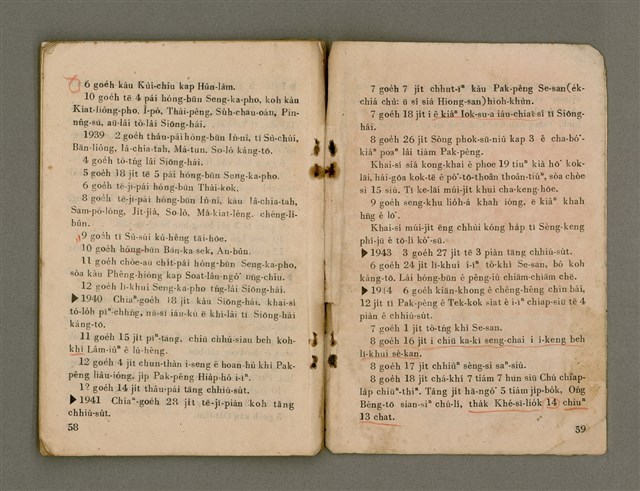 6 goe̍h kàu Kùi-chiu kap Hûn-lâm.
10 goe̍h tē 4 pái hóng-būn Seng-ka-pho, koh kàu
Kiat-liông-pho, Î-pó, Thài-pêng, Si̍h-chau-oán, Pin-
nn̂g-sū, aū-lâi tò-lâi Siōng-hái.
1939 2 goe̍h thâu-pái hóng-būn Ìn-nî, tī Sù-chúi,
Bān-liông, Iâ-chia-tah, Má-tun, So-lô káng-tō.
4 goe̍h tò-tńg lâi Siōng-hái.
5 goe̍h 18 ji̍t tē 5 pái hóng-būn Seng-ka-pho.
6 goe̍h tē-jī-pái hóng-būn Thài-kok.
8 goe̍h tē-jī-pái hóng-būn Ìn-nî, kàu Iâ-chia-tah,
Sam-pó-lông, Ji̍t-jiā, So-lô, Má-kiat-lêng, chèng-lí-
būn.
9 goe̍h tī Sù-súi kú-hêng tāi-hōe.
10 goe̍h hóng-būn Bān-ka sek, An-bûn.
11 goe̍h chòe-aū chi̍t-pái hóng-būn Seng-ka-pho,
sòa kàu Phêng-hiòng kap Soat-lân-ngô͘ n̄g-chiu.
12 goe̍h lī-khui Seng-ka-pho tńg-lâi Siōng-hái.
▶1940 Chiaⁿ-goe̍h 18 ji̍t kàu Siōng-hái, khai-sí
tó-lo̍h pīⁿ-chhn̂g, nā-sī iáu-kú ē khí-lâi tī Siōng-hái
káng-tō.
11 goe̍h 15 ji̍t pīⁿ-tāng, chiū chhú-siau beh koh-
khì Lâm-iûⁿ ê lú-hêng.
12 goe̍h 4 ji̍t chun-thàn i-seng ê hoan-hù khì Pak-
pêng liâu-ióng, ji̍p Pak-pêng Hia̍p-hô i-īⁿ.
12 goe̍h 14 ji̍t thâu-pái tăng chhiú-su̍t.
▶1941 Chiaⁿ-goe̍h 28 ji̍t tē-jī-piàn koh tăng
chhiú-su̍t.
58
7 goe̍h 7 ji̍t chhut-īⁿ kàu Pak-pêng Se-san (e̍k-
chiá chù: ū sî siá Hiong-san) hioh-khùn.
7 goe̍h 18 ji̍t i ê kiáⁿ Iok-su-a iáu-chiat sí tī Siōng-
hái.
8 goe̍h 26 ji̍t Sòng phok-sū-niû kap 3 ê cha-bó͘-
kiáⁿ poaⁿ lâi tiàm Pak-pêng.
Khai-sí siá kong-khai ê phoe 19 tiuⁿ kià hō͘ kok-
lāi, hái-gōa kok-tē ê pò͘-tō-thoân thoân-tiúⁿ, sòa chòe
sì 15 siú. Tī ke-lāi múi-ji̍t khui cha-keng-hōe.
9 goe̍h seng-khu lio̍h-á khah ióng, ē kiâⁿ khah
hn̄g ê lō͘.
Khai-sí múi-ji̍t ēng chhùi kóng ha̍p tī Sèng-keng
phì-jū ê tō-lí kò͘-sū.
▶1943 3 goe̍h 27 ji̍t tē 3 piàn tăng chhiú-su̍t.
6 goe̍h 24 ji̍t lī-khui i-īⁿ tò-khì Se-san, bô koh
káng-tō. Lâi hóng-būn ê pêng-iú chiām-chiām chē.
▶1944 6 goe̍h kiān-khong ê chêng-hêng chin bái,
12 ji̍t tī Pak-pêng ê Tek-kok siat ê i-īⁿ chiap-siū tē 4
piàn ê chhiú-su̍t.
7 goe̍h 1 ji̍t tò-tńg khì Se-san.
8 goe̍h 16 ji̍t i chiū ka-kī seng-chai i í-keng beh
lī-khui sè-kan.
8 goe̍h 17 ji̍t chhiùⁿ sèng-si saⁿ-siú.
8 goe̍h 18 ji̍t chá-khí 7 tiám 7 hun siū Chú chiap-
la̍p chiūⁿ-thiⁿ. Tăng ji̍t hā-ngó͘ 5 tiám ji̍p-bo̍k, Ông
Bêng-tō sian-siⁿ chú-lí, tha̍k Khé-sī-lio̍k 14 chiuⁿ
13 chat.
59